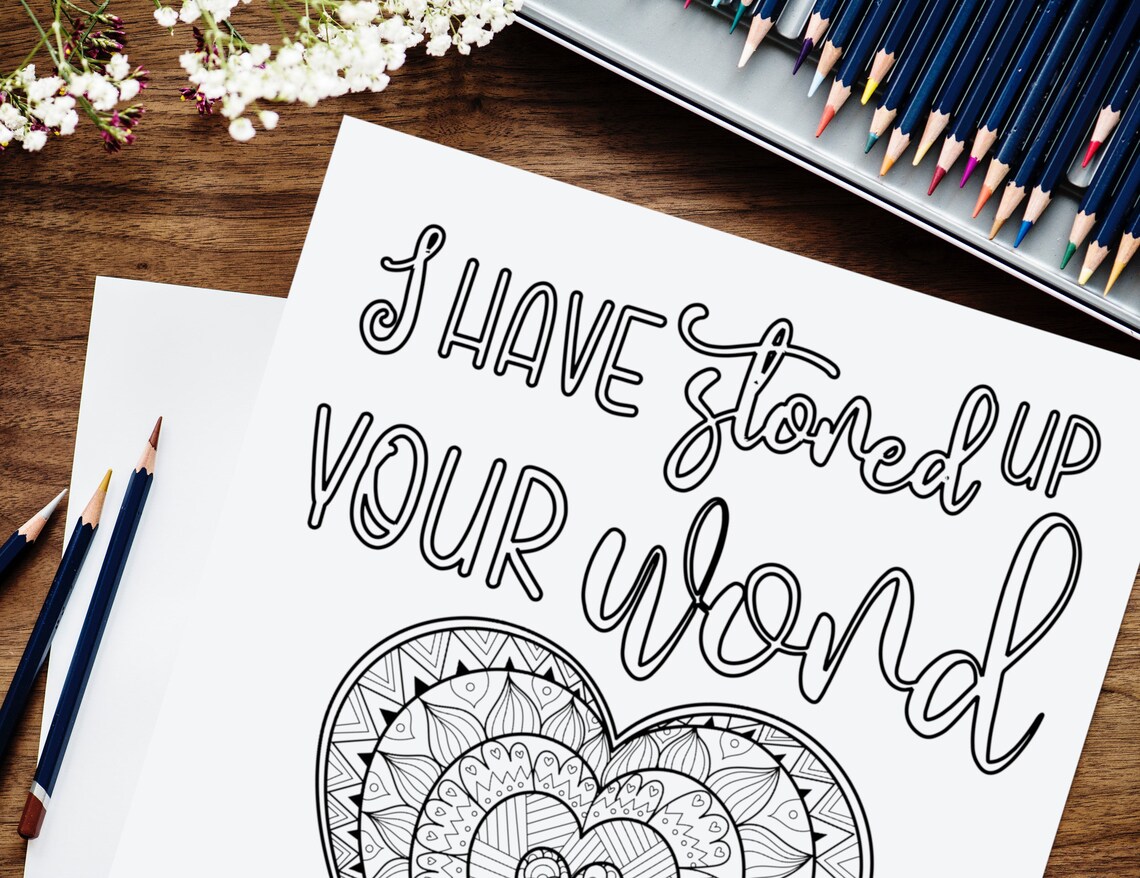 I HAVE stored UP
YOUR word